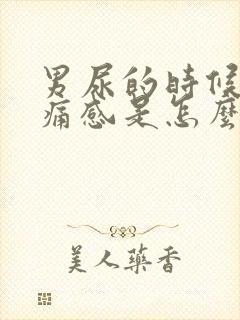 男尿的時候
痛感是怎麼
美人藥香